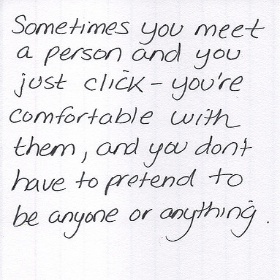 Sometimes you meet
a person and you
just click - you're
comfortable with
them, and you don't
have to pretend to
be anyone or anything.